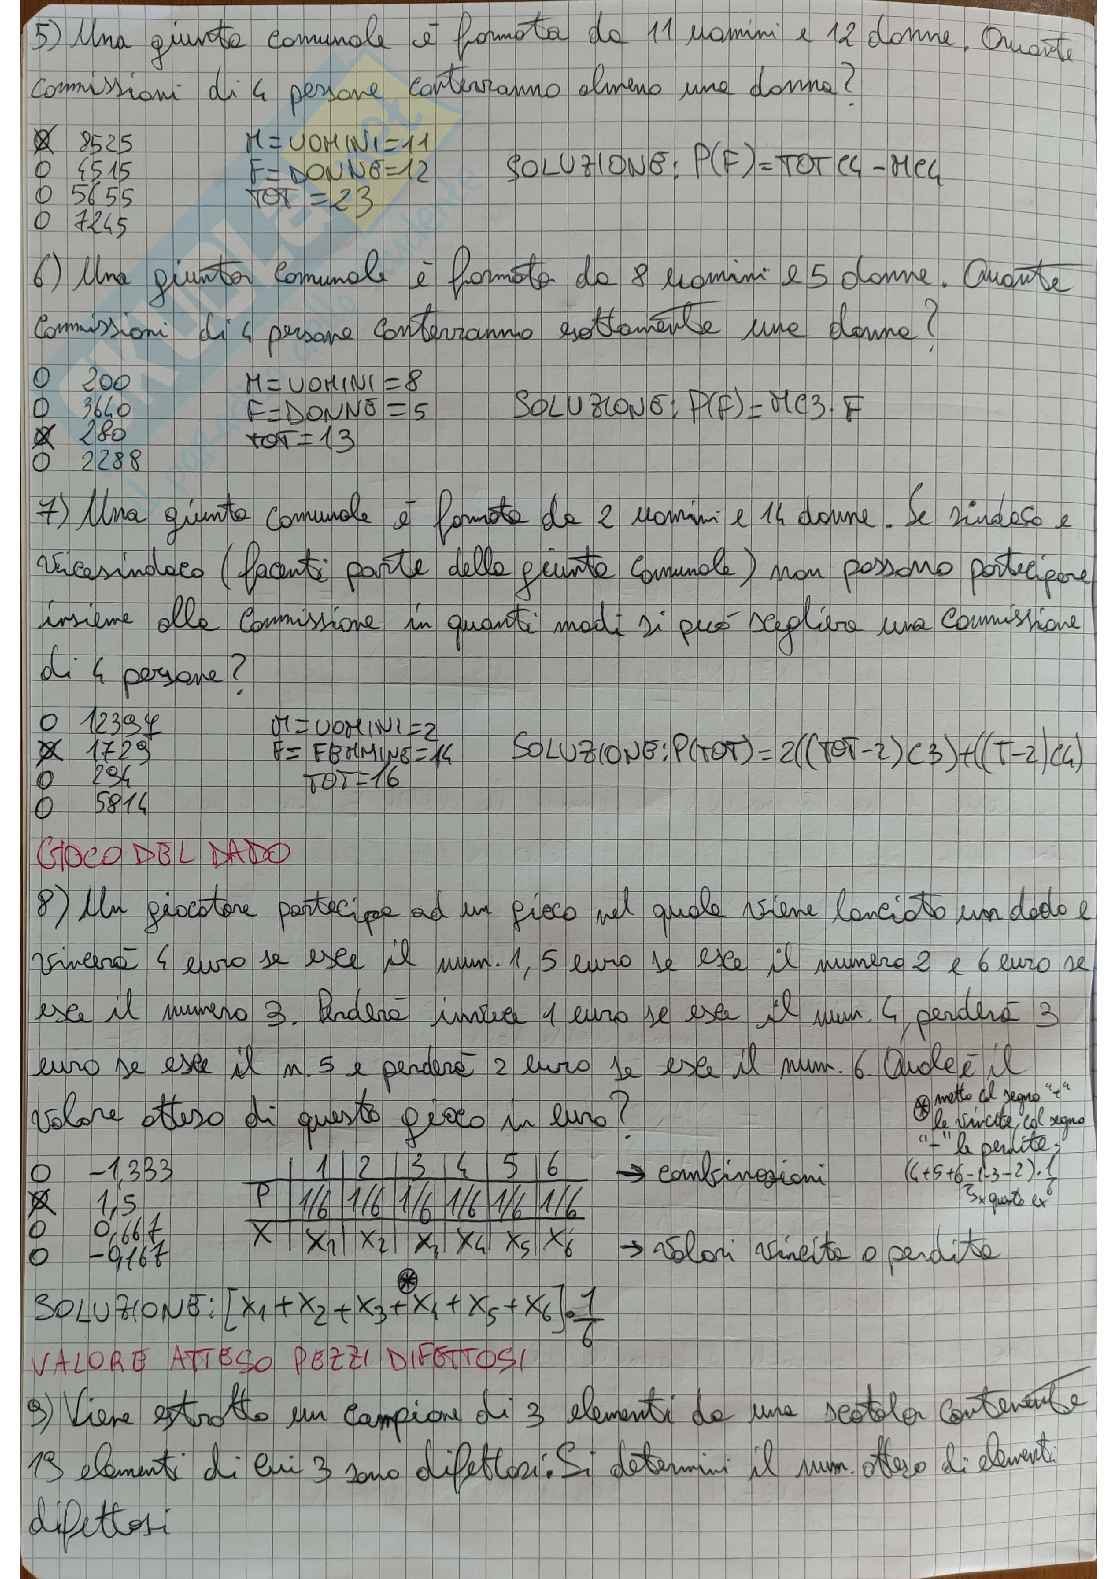 5) Una giunta comunale è formata da 11 uomini e 12 donne. Quante
commissioni di 4 persone conterranno almeno una donna?
8525 M=UOMINI=11
4515 F=DONNE=12 SOLUZIONE: P(F)=TOTC4-MC4
5655 TOT=23
7245
6) Una giunta comunale è formata da 8 uomini e 5 donne. Quante
commissioni di 4 persone conterranno esattamente una donna?
200 M=UOMINI=8
3640 F=DONNE=5 SOLUZIONE: P(F)=MC3·F
280 TOT=13
2288
7) Una giunta comunale è formata da 2 uomini e 14 donne. Se sindaco e
vicesindaco (facenti parte della giunta comunale) non possono partecipare
insieme alla commissione in quanti modi si può scegliere una commissione
di 4 persone?
12397 M=UOMINI=2
1729 F=FEMMINE=14 SOLUZIONE: P(TOT)=2((TOT-2)C3)+((T-2)C4)
294 TOT=16
5814
GIOCO DEL DADO
8) Un giocatore partecipa ad un gioco nel quale viene lanciato un dado e
vincerà 4 euro se esce il num. 1, 5 euro se esce il numero 2 e 6 euro se
esce il numero 3. Perderà invece 1 euro se esce il num. 4, perderà 3
euro se esce il n. 5 e perderà 2 euro se esce il num. 6. Quale è il
valore atteso di questo gioco in euro?
metto col segno "+"
le vincite, col segno
"-" le perdite:
(4+5+6-1-3-2)·1/6
x questo ex
-1,333 1 2 3 4 5 6 → combinazioni
1,5 P 1/6 1/6 1/6 1/6 1/6 1/6
0,667 X X1 X2 X3 X4 X5 X6 → valori vincita o perdita
-0,167
SOLUZIONE: [X1+X2+X3+X4+X5+X6]·1/6
VALORE ATTESO PEZZI DIFETTOSI
9) Viene estratto un campione di 3 elementi da una scatola contenente
19 elementi di cui 3 sono difettosi. Si determini il num. atteso di elementi
difettosi